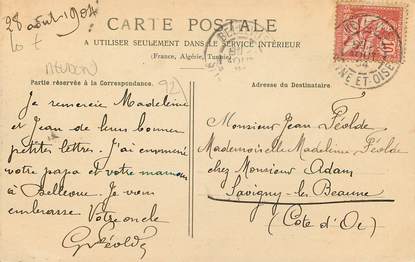 28 août 1904
CARTE POSTALE
A UTILISER SEULEMENT DANS LE SERVICE INTÉRIEUR
(France, Algérie, Tunisie)
Partie réservée à la Correspondance.
Adresse du Destinataire.
Je remercie Madeleine
et Jean de leurs bonnes
petites lettres. J'ai emmené
votre papa et votre maman
à Bellevue. Je vous
embrasse Votre oncle
G Péolde
Monsieur Jean Péolde
Mademoiselle Madeleine Péolde
chez Monsieur Adam
Savigny-les-Beaune
(Côte d'Or)
10
NE-ET-OISE